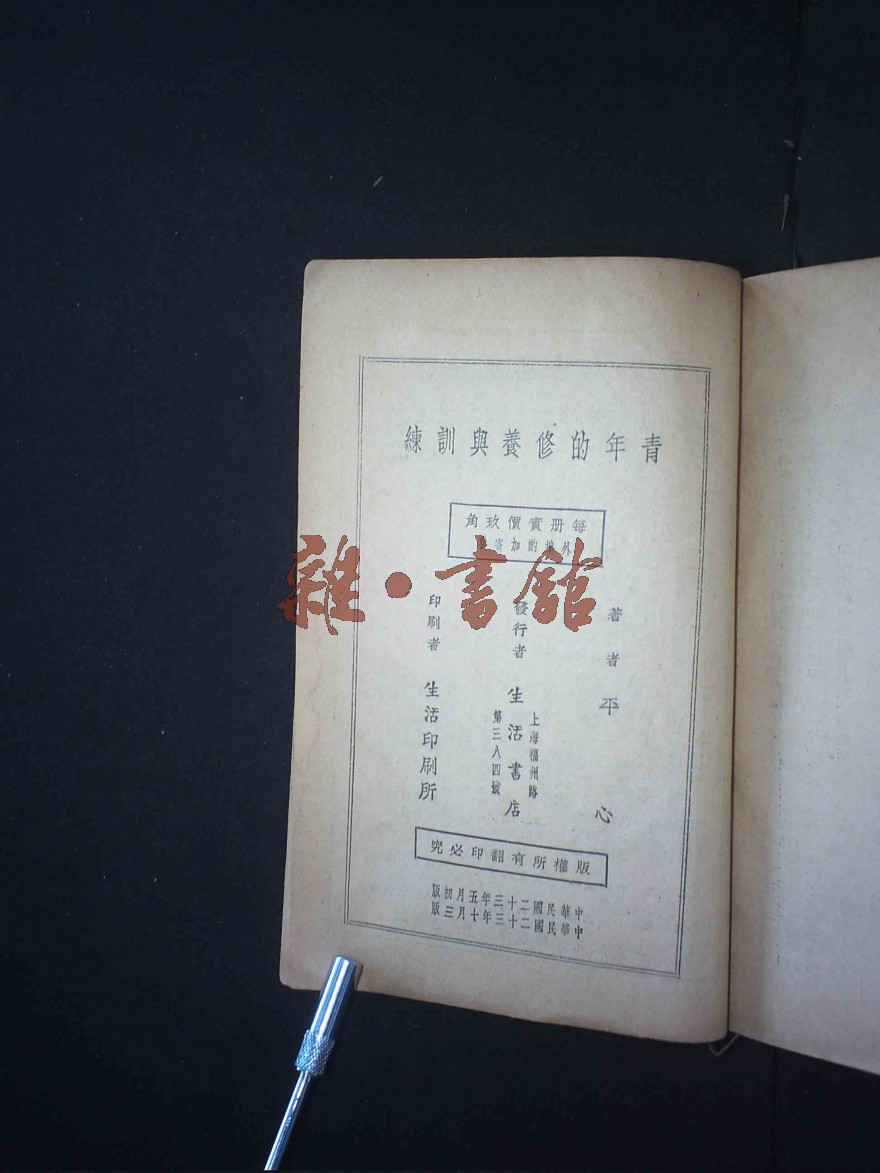 青年的修養與訓練
每冊實價玖角
外埠酌加寄費
著者 平心
發行者 生活書店
上海福州路
第三八四號
印刷者 生活印刷所
版權所有翻印必究
中華民國二十三年五月初版
中華民國二十三年十月三版
雜·書館